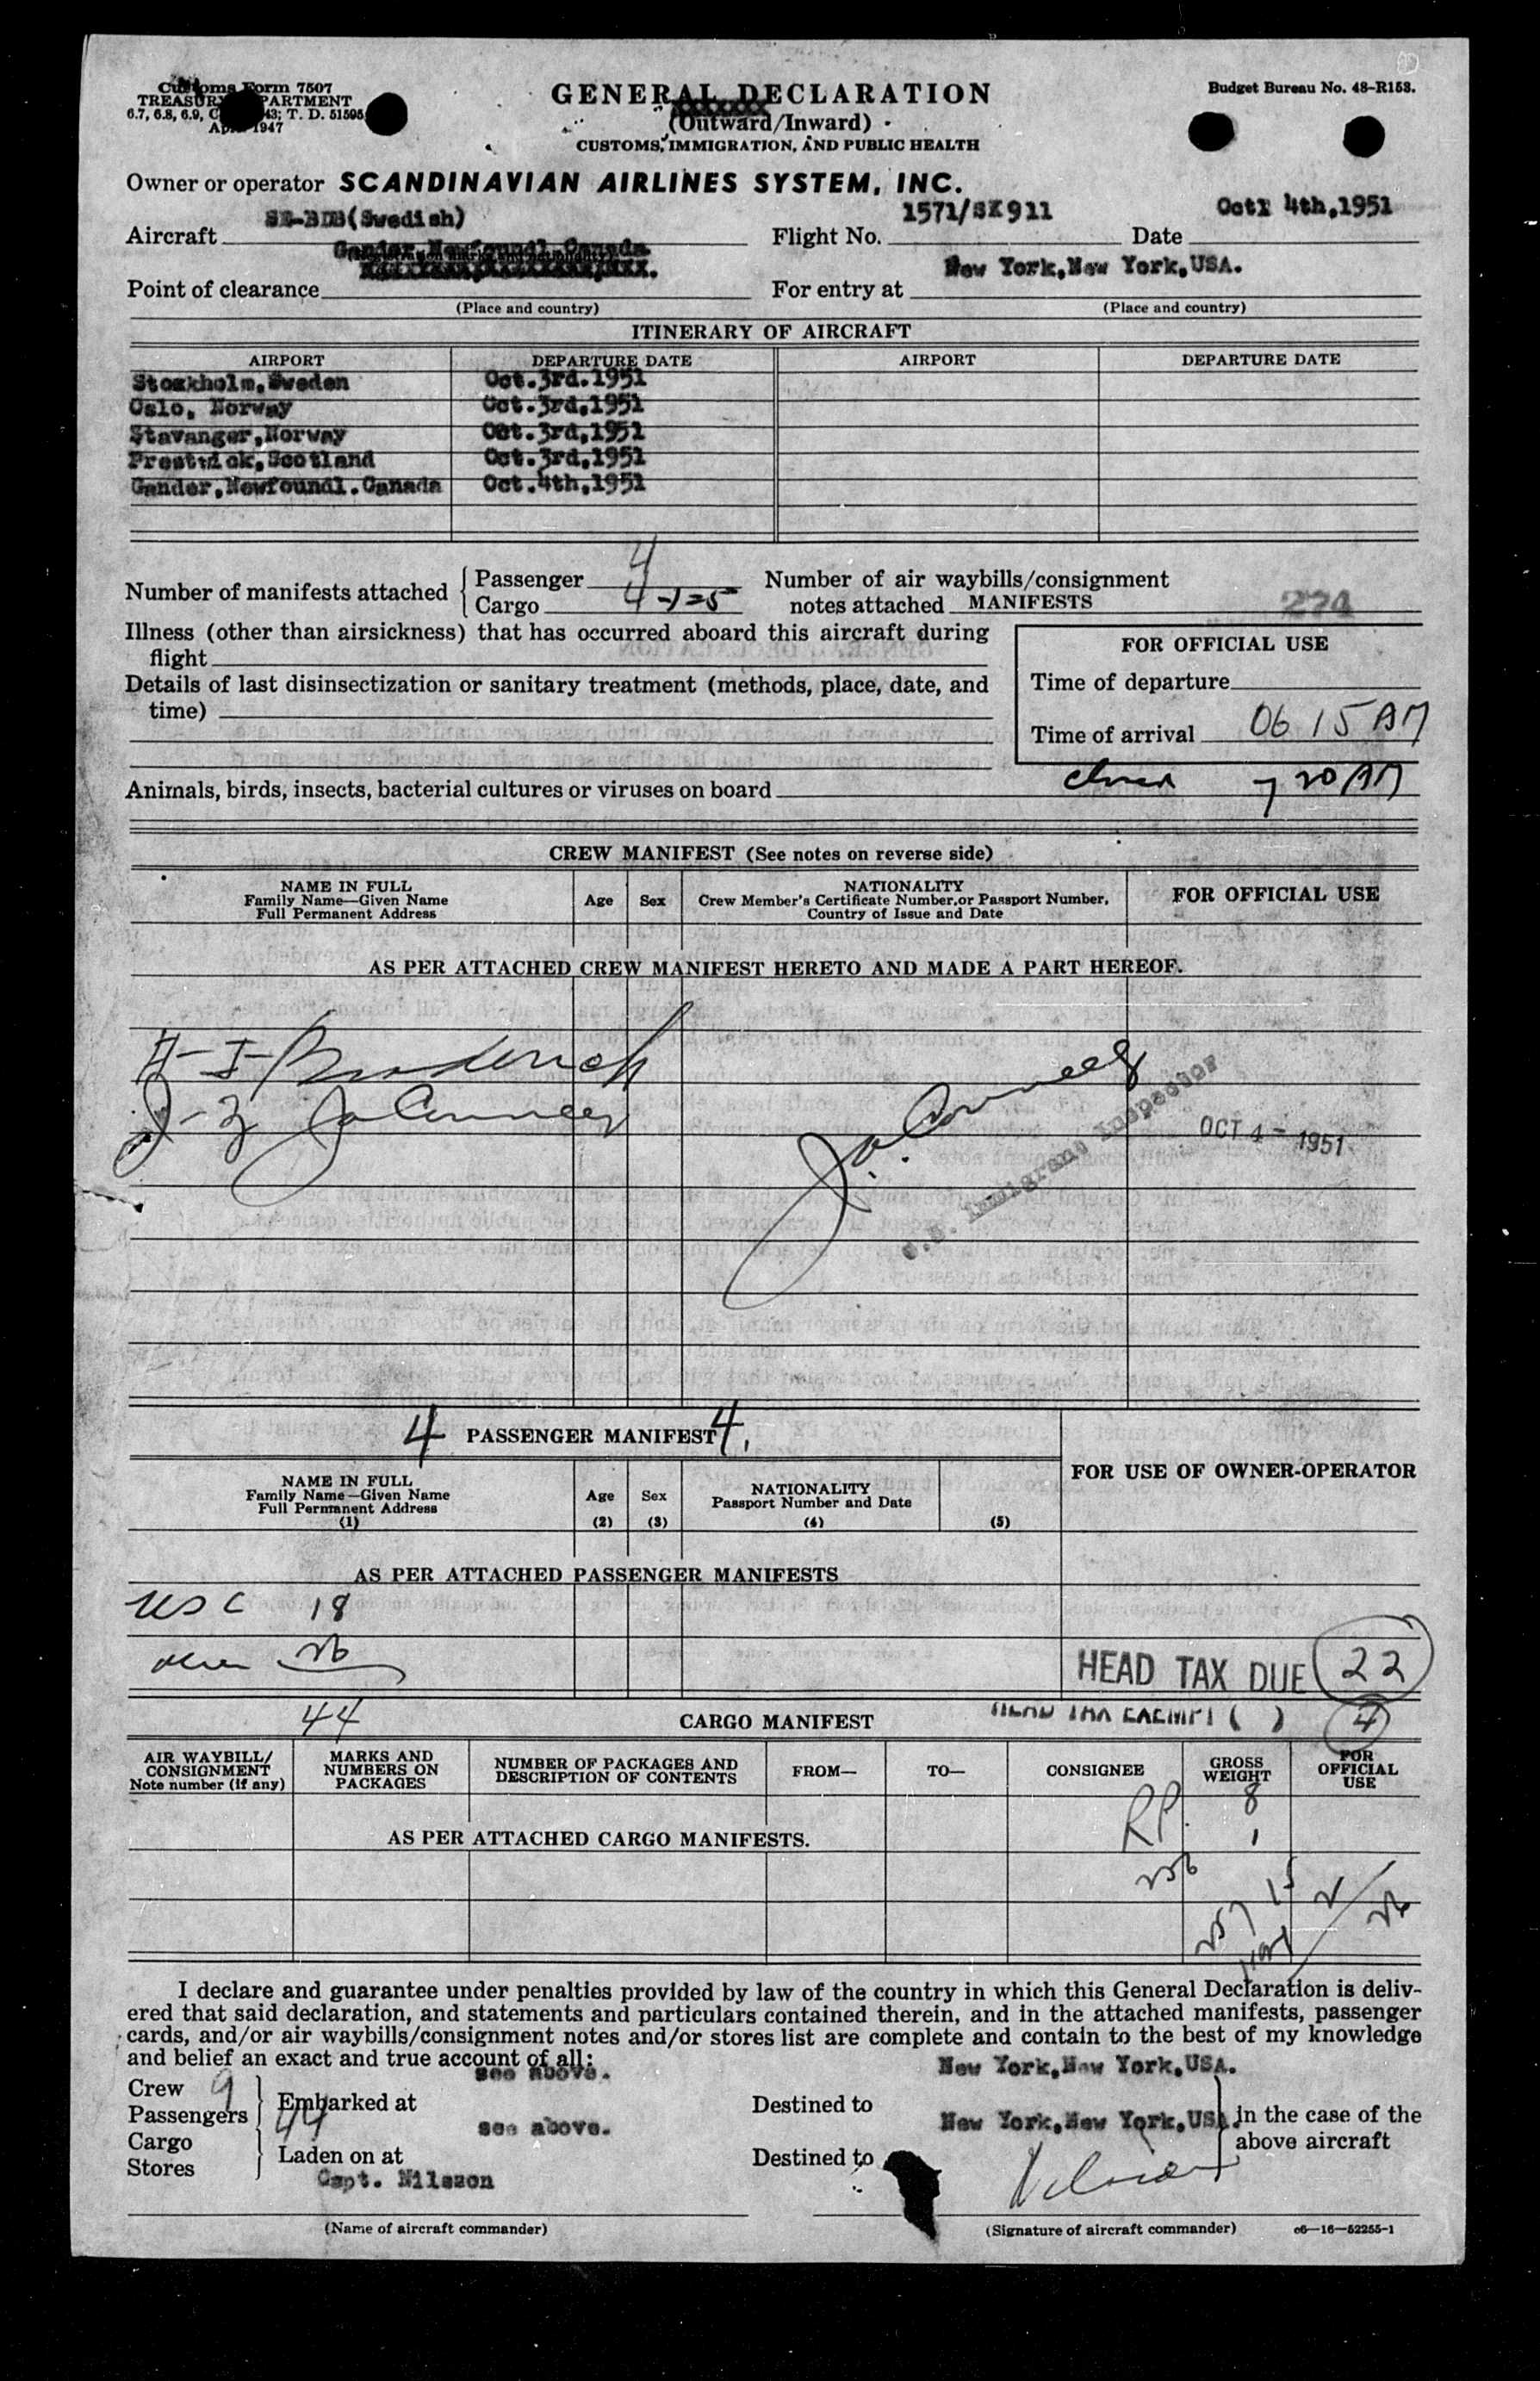 Customs Form 7507
TREASURY DEPARTMENT
April 1947
GENERAL DECLARATION
(Outward/Inward)
CUSTOMS, IMMIGRATION, AND PUBLIC HEALTH
Budget Bureau No. 48-R153.
Owner or operator SCANDINAVIAN AIRLINES SYSTEM, INC.
Aircraft SE-BDB(Swedish)
Flight No. 1571/SK911
Date Oct 4th,1951
Point of clearance Gander, Newfoundl. Canada
(Place and country)
For entry at New York,New York,USA.
(Place and country)
ITINERARY OF AIRCRAFT
AIRPORT DEPARTURE DATE AIRPORT DEPARTURE DATE
Stockholm,Sweden Oct.3rd.1951
Oslo, Norway Oct.3rd,1951
Stavanger,Norway Oct.3rd,1951
Prestwick,Scotland Oct.3rd,1951
Gander,Newfoundl.Canada Oct.4th,1951
Number of manifests attached
Passenger 4
Cargo 4-1=5
Number of air waybills/consignment
notes attached MANIFESTS 274
Illness (other than airsickness) that has occurred aboard this aircraft during
flight
Details of last disinsectization or sanitary treatment (methods, place, date, and
time)
FOR OFFICIAL USE
Time of departure
Time of arrival 06 15 AM
7 20 AM
Animals, birds, insects, bacterial cultures or viruses on board
CREW MANIFEST (See notes on reverse side)
NAME IN FULL
Family Name—Given Name
Full Permanent Address
Age Sex
NATIONALITY
Crew Member's Certificate Number,or Passport Number,
Country of Issue and Date
FOR OFFICIAL USE
AS PER ATTACHED CREW MANIFEST HERETO AND MADE A PART HEREOF.
U.S. Immigrant Inspector
OCT 4 - 1951
4 PASSENGER MANIFEST 4.
NAME IN FULL
Family Name—Given Name
Full Permanent Address
(1)
Age
(2)
Sex
(3)
NATIONALITY
Passport Number and Date
(4)
(5)
FOR USE OF OWNER-OPERATOR
AS PER ATTACHED PASSENGER MANIFESTS
USC 18
26
HEAD TAX DUE 22
44
CARGO MANIFEST
HEAD TAX EXEMPT ( ) 4
AIR WAYBILL/
CONSIGNMENT
Note number (if any)
MARKS AND
NUMBERS ON
PACKAGES
NUMBER OF PACKAGES AND
DESCRIPTION OF CONTENTS
FROM—
TO—
CONSIGNEE
GROSS
WEIGHT
FOR
OFFICIAL
USE
RP. 8
1
AS PER ATTACHED CARGO MANIFESTS.
256
257 15
I declare and guarantee under penalties provided by law of the country in which this General Declaration is deliv-
ered that said declaration, and statements and particulars contained therein, and in the attached manifests, passenger
cards, and/or air waybills/consignment notes and/or stores list are complete and contain to the best of my knowledge
and belief an exact and true account of all:
Crew 9
Passengers 44
Embarked at see above.
Destined to New York,New York,USA.
Cargo
Stores
Laden on at see above.
Destined to New York,New York,USA.
in the case of the
above aircraft
Capt. Nilsson
(Name of aircraft commander)
(Signature of aircraft commander)
c6—16—52255-1